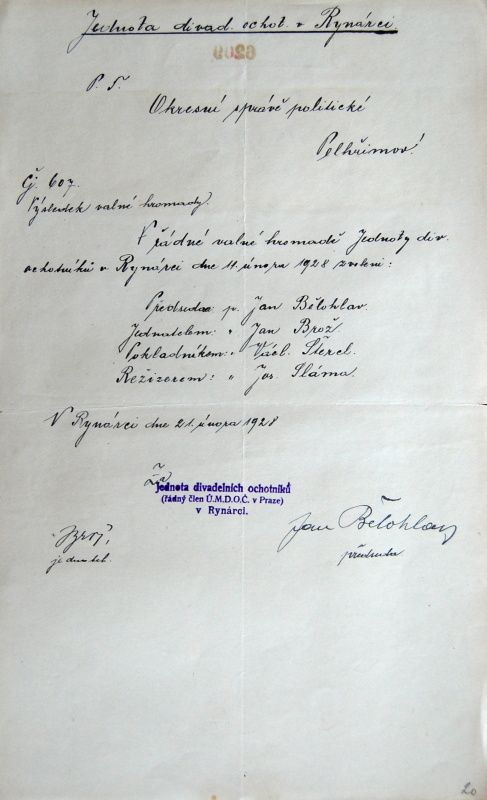 Jednota divad. ochot. v Rynárci.
6209
P. T.
Okresní správě politické
Pelhřimov!
Čj. 607.
Výsledek valné hromady.
V řádné valné hromadě Jednoty div.
ochotníků v Rynárci dne 4. února 1928 zvoleni:
Předsedou: p. Jan Bělohlav.
Jednatelem: " Jan Brož
Pokladníkem: " Václ. Šterel.
Režizerem: " Jos. Sláma.
V Rynárci dne 21. února 1928
Za
Jednota divadelních ochotníků
(řádný člen Ú.M.D.O.Č. v Praze)
v Rynárci.
Brož,
jednatel.
Jan Bělohlav
předseda
20